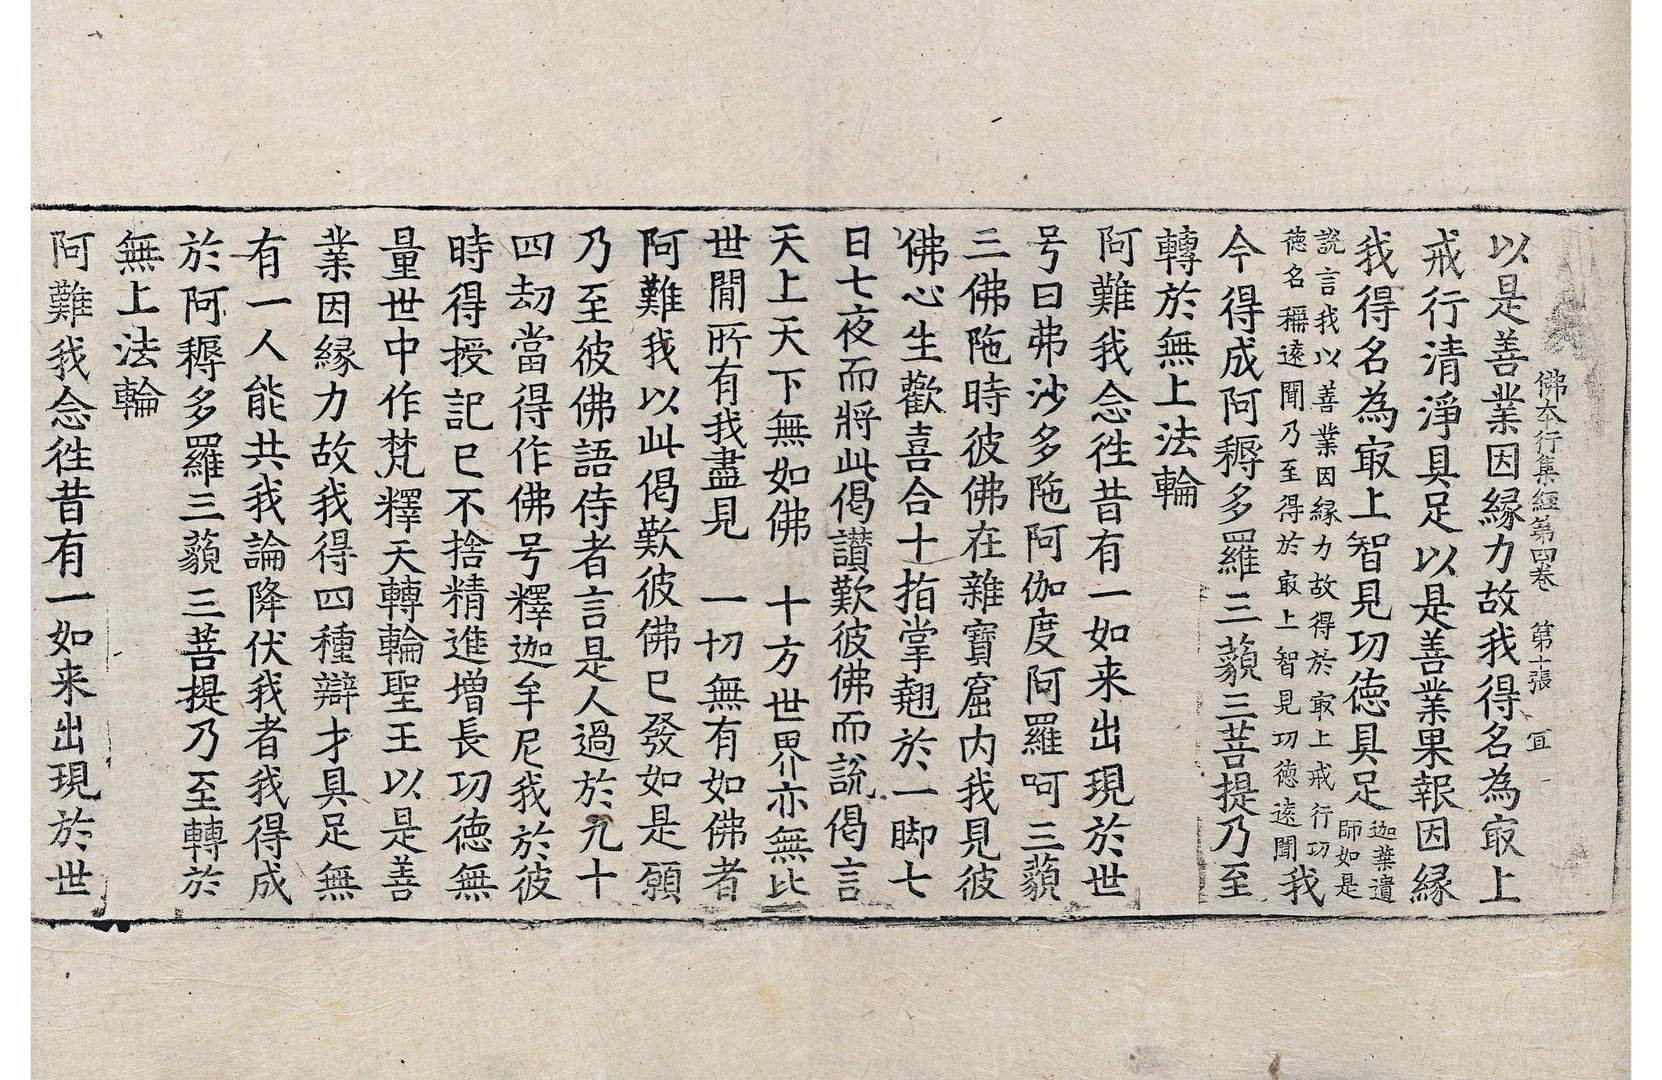 佛本行集經第四卷　第十張　宜
以是善業因緣力故我得名為㝡上
戒行清淨具足以是善業果報因緣
我得名為㝡上智見功德具足迦葉遺師如是
說言我以善業因緣力故得於㝡上戒行功
德名稱遠聞乃至得於㝡上智見功德遠聞我
今得成阿耨多羅三藐三菩提乃至
轉於無上法輪
阿難我念徃昔有一如来出現於世
号曰弗沙多陁阿伽度阿羅呵三藐
三佛陁時彼佛在雜寶窟内我見彼
佛心生歡喜合十指掌翹於一脚七
日七夜而將此偈讃歎彼佛而說偈言
天上天下無如佛　十方世界亦無比
世間所有我盡見　一切無有如佛者
阿難我以此偈歎彼佛已發如是願
乃至彼佛語侍者言是人過於九十
四劫當得作佛号釋迦牟尼我於彼
時得授記已不捨精進增長功德無
量世中作梵釋天轉輪聖王以是善
業因緣力故我得四種辯才具足無
有一人能共我論降伏我者我得成
於阿耨多羅三藐三菩提乃至轉於
無上法輪
阿難我念徃昔有一如来出現於世